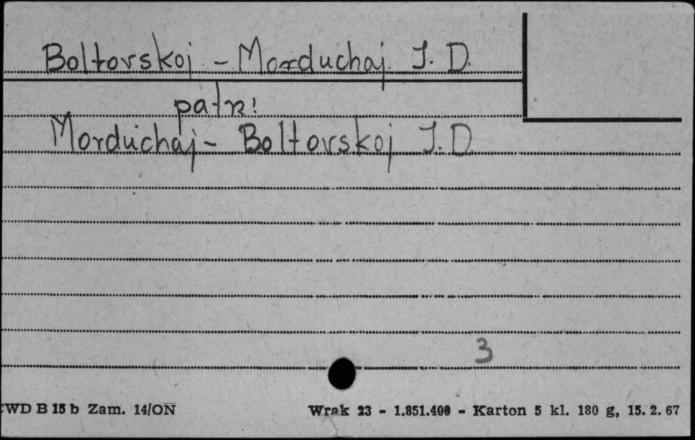 Boltovskoj - Morduchaj J. D.
patrz!
Morduchaj - Boltovskoj J. D
3
CWD B 15 b Zam. 14/ON Wrak 23 - 1.851.400 - Karton 5 kl. 180 g, 15. 2. 67